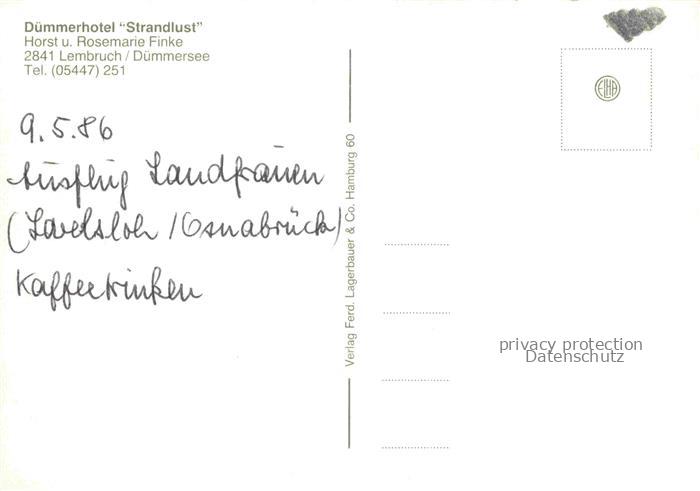 Dümmerhotel “Strandlust”
Horst u. Rosemarie Finke
2841 Lembruch / Dümmersee
Tel. (05447) 251
9.5.86
Ausflug Landfrauen
(Lavelsloh / Osnabrück)
Kaffeetrinken
Verlag Ferd. Lagerbauer & Co. Hamburg 60
ELHA
privacy protection
Datenschutz